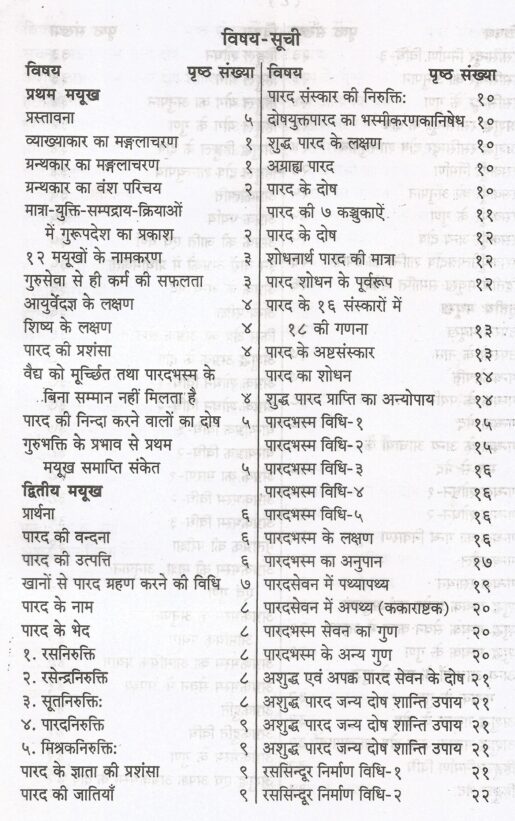 विषय-सूची
विषय पृष्ठ संख्या
प्रथम मयूख
प्रस्तावना ५
व्याख्याकार का मङ्गलाचरण १
ग्रन्थकार का मङ्गलाचरण १
ग्रन्थकार का वंश परिचय २
मात्रा-युक्ति-सम्पद्राय-क्रियाओं
में गुरूपदेश का प्रकाश २
१२ मयूखों के नामकरण ३
गुरुसेवा से ही कर्म की सफलता ३
आयुर्वेदज्ञ के लक्षण ४
शिष्य के लक्षण ४
पारद की प्रशंसा ४
वैद्य को मूर्च्छित तथा पारदभस्म के
बिना सम्मान नहीं मिलता है ४
पारद की निन्दा करने वालों का दोष ५
गुरुभक्ति के प्रभाव से प्रथम
मयूख समाप्ति संकेत ५
द्वितीय मयूख
प्रार्थना ६
पारद की वन्दना ६
पारद की उत्पत्ति ६
खानों से पारद ग्रहण करने की विधि ७
पारद के नाम ८
पारद के भेद ८
१. रसनिरुक्ति ८
२. रसेन्द्रनिरुक्ति ८
३. सूतनिरुक्ति: ८
४. पारदनिरुक्ति ९
५. मिश्रकनिरुक्ति: ९
पारद के ज्ञाता की प्रशंसा ९
पारद की जातियाँ ९
विषय पृष्ठ संख्या
पारद संस्कार की निरुक्ति: १०
दोषयुक्तपारद का भस्मीकरणकानिषेध १०
शुद्ध पारद के लक्षण १०
अग्राह्य पारद १०
पारद के दोष १०
पारद की ७ कञ्चुकाऐं ११
पारद के दोष १२
शोधनार्थ पारद की मात्रा १२
पारद शोधन के पूर्वरूप १२
पारद के १६ संस्कारों में
१८ की गणना १३
पारद के अष्टसंस्कार १३
पारद का शोधन १४
शुद्ध पारद प्राप्ति का अन्योपाय १४
पारदभस्म विधि-१ १५
पारदभस्म विधि-२ १५
पारदभस्म विधि-३ १६
पारदभस्म विधि-४ १६
पारदभस्म विधि-५ १६
पारदभस्म के लक्षण १६
पारदभस्म का अनुपान १७
पारदसेवन में पथ्यापथ्य १९
पारदसेवन में अपथ्य (ककाराष्टक) २०
पारदभस्म सेवन का गुण २०
पारदभस्म के अन्य गुण २०
अशुद्ध एवं अपक्व पारद सेवन के दोष २१
अशुद्ध पारद जन्य दोष शान्ति उपाय २१
अशुद्ध पारद जन्य दोष शान्ति उपाय २१
रससिन्दूर निर्माण विधि-१ २१
रससिन्दूर निर्माण विधि-२ २२